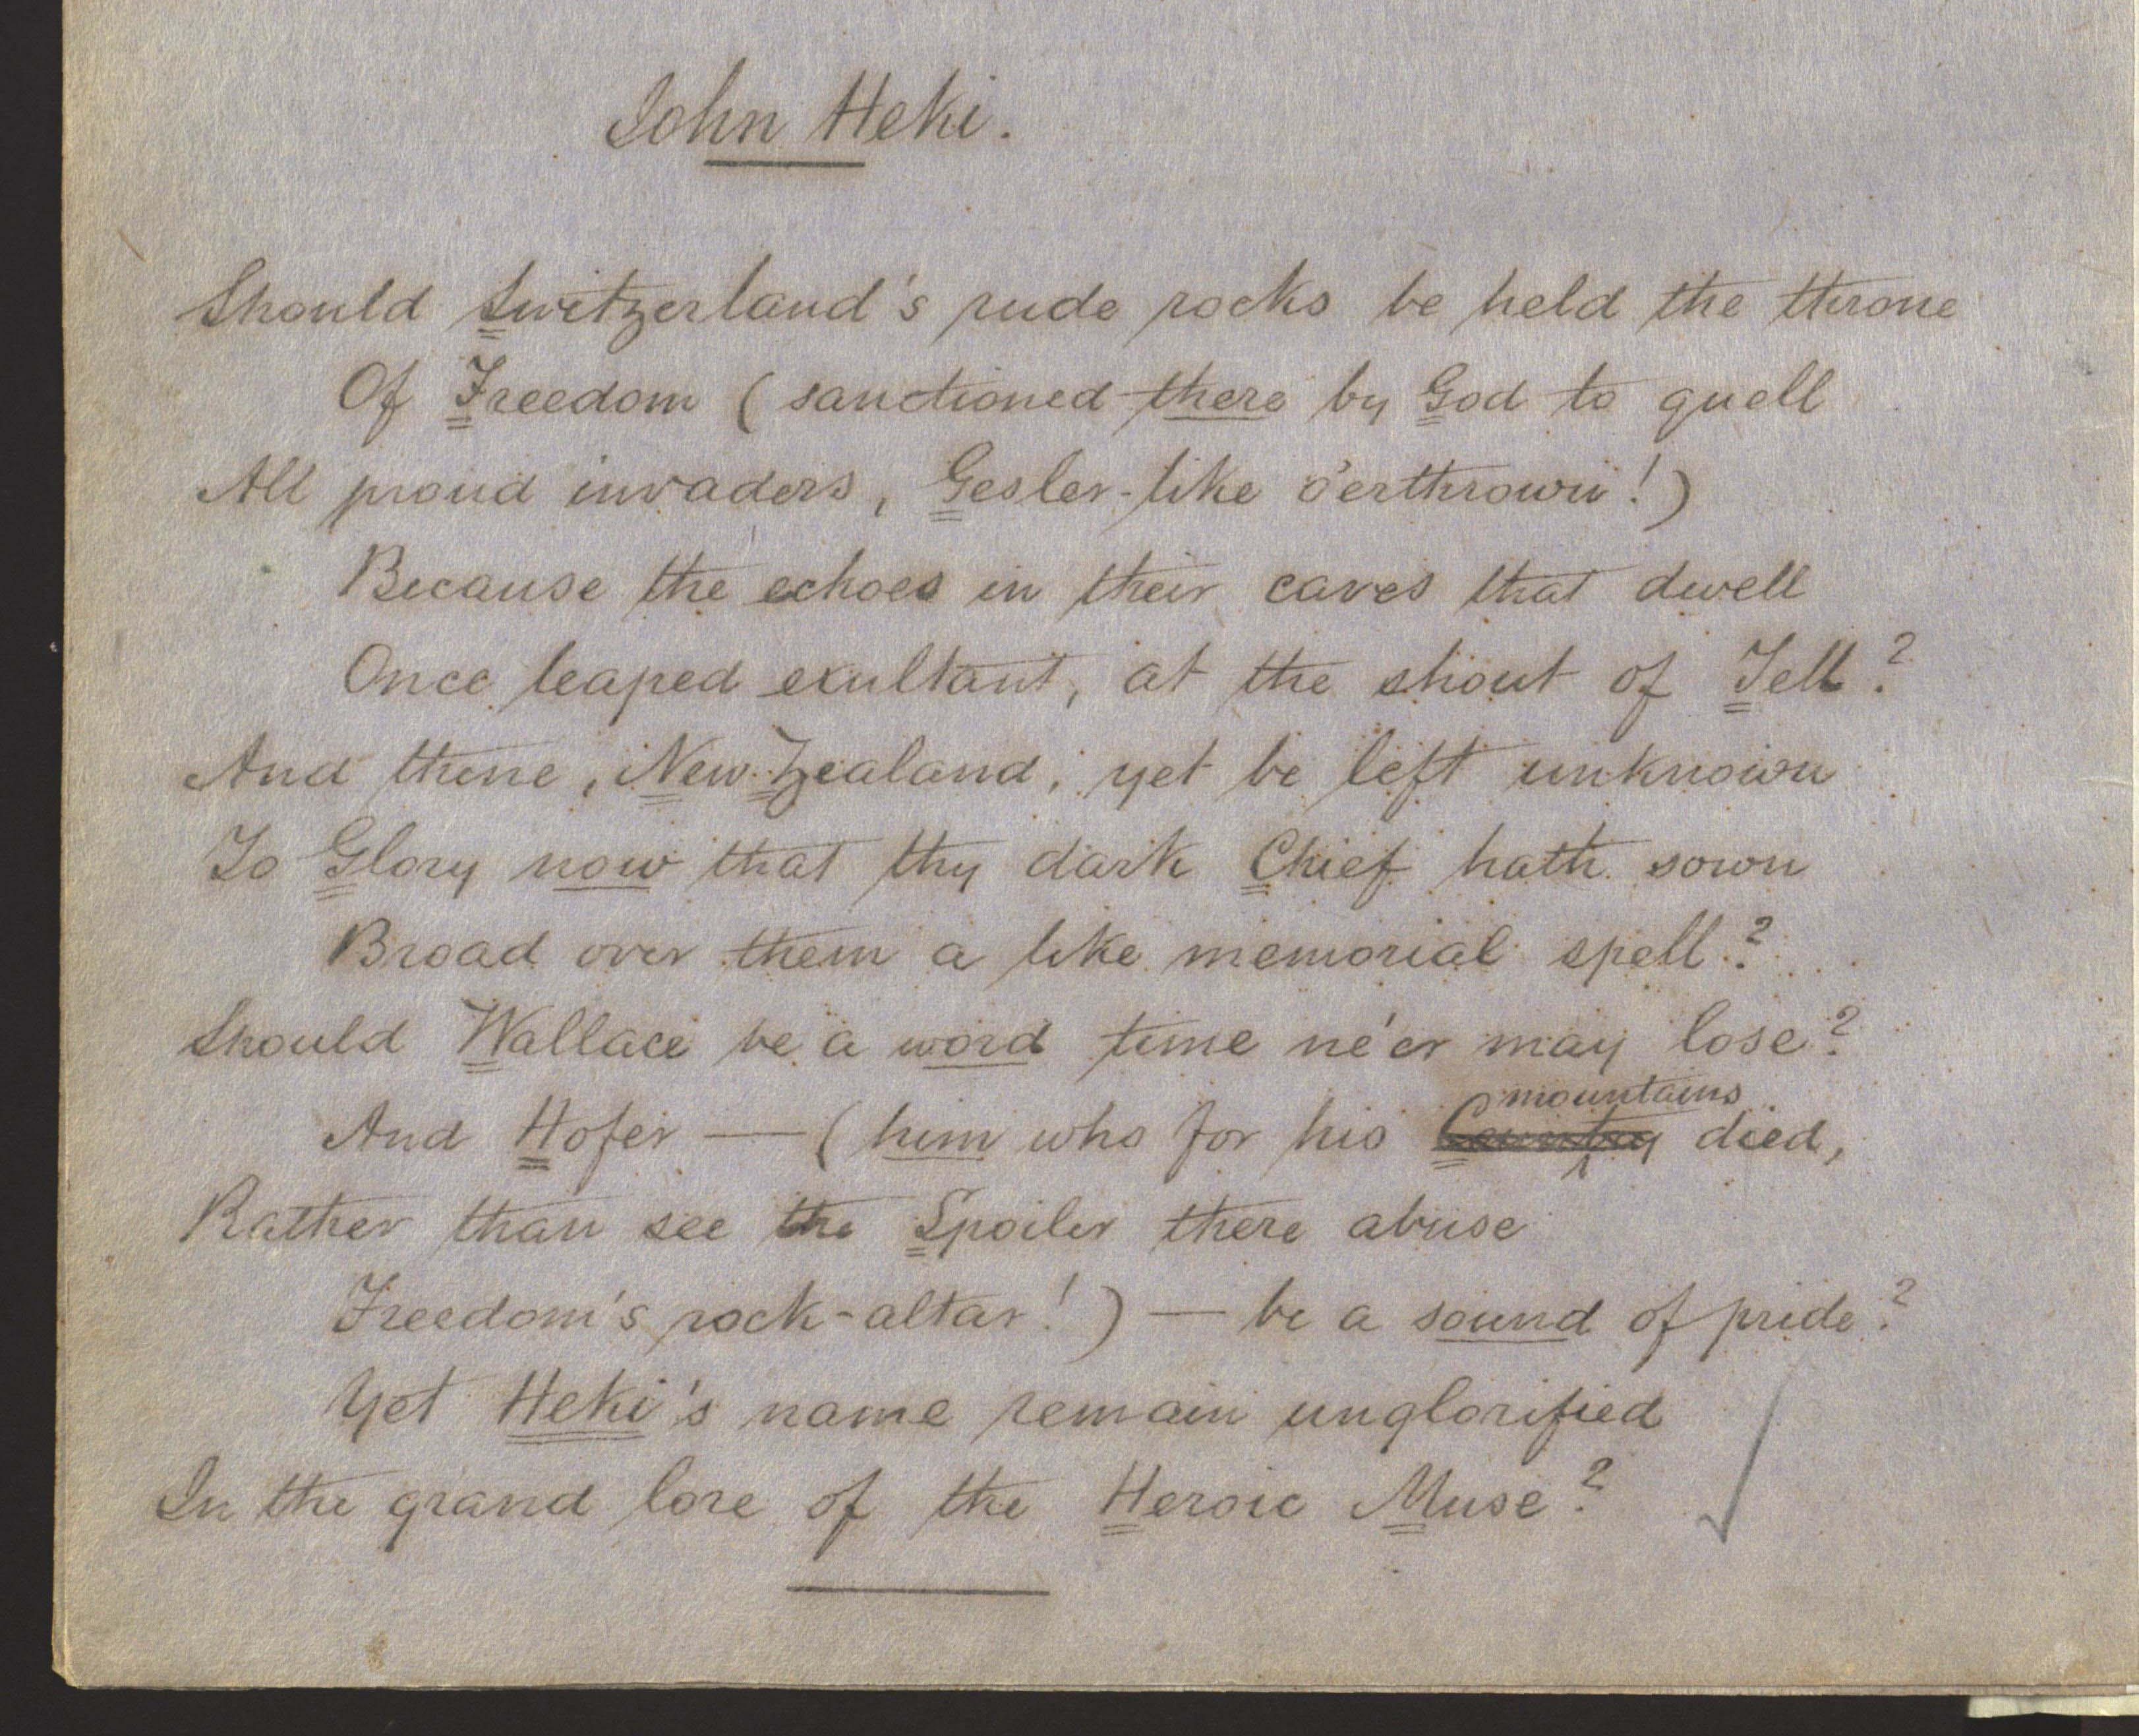 John Heki.
Should Switzerland's rude rocks be held the throne
Of Freedom (sanctioned there by God to quell
All proud invaders, Gesler-like o'erthrown!)
Because the echoes in their caves that dwell
Once leaped exultant, at the shout of Tell?
And thine, New Zealand, yet be left unknown
To Glory now that thy dark Chief hath sown
Broad over them a like memorial spell?
Should Wallace be a word time ne'er may lose?
mountains
And Hofer — (him who for his Country died,
Rather than see the Spoiler there abuse
Freedom's rock-altar!) — be a sound of pride?
Yet Heki's name remain unglorified
In the grand lore of the Heroic Muse?